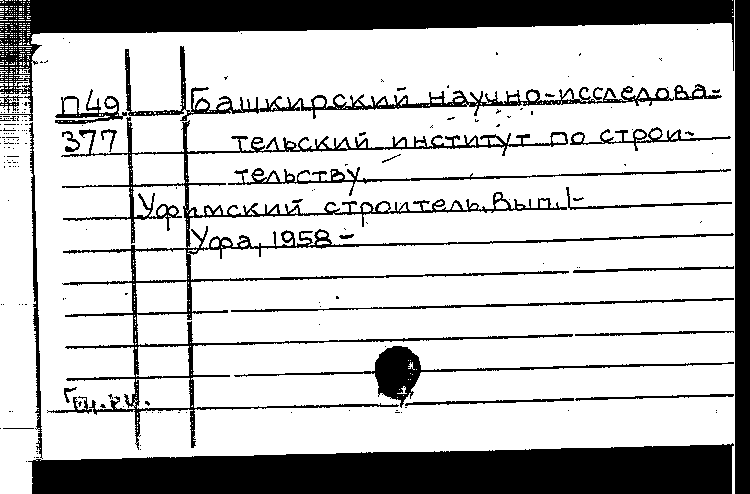 П49 Башкирский научно-исследова-
377 тельский институт по строи-
тельству.
Уфимский строитель. Вып. 1-
Уфа, 1958 -